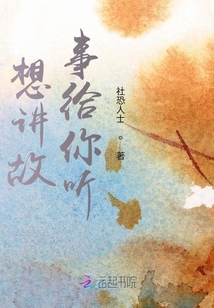 想讲故
事给你听
社恐人士
。著
云起书院